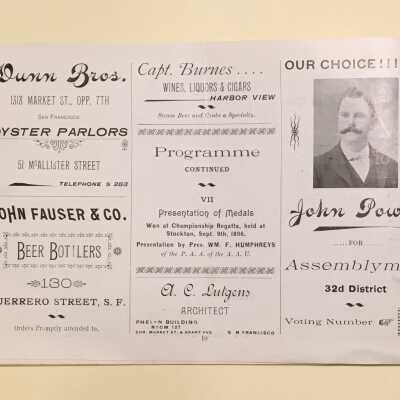 Dunn Bros.
1313 MARKET ST., OPP. 7TH
SAN FRANCISCO
OYSTER PARLORS
51 MCALLISTER STREET
TELEPHONE S 283
JOHN FAUSER & CO.
BEER BOTTLERS
130
GUERRERO STREET, S. F.
Orders Promptly attended to.
Capt. Burnes....
WINES, LIQUORS & CIGARS
HARBOR VIEW
Steam Beer and Crabs a Specialty.
Programme
CONTINUED
VII
Presentation of Medals
Won at Championship Regatta, held at
Stockton, Sept. 9th, 1896,
Presentation by Pres. WM. F. HUMPHREYS
of the P. A. A. of the A. A. U.
A. C. Lutgens
ARCHITECT
PHELAN BUILDING
ROOM 137
COR. MARKET ST. & GRANT AVE.
SAN FRANCISCO
19
OUR CHOICE!!!
John Pow
.....FOR
Assemblym
32d District
Voting Number